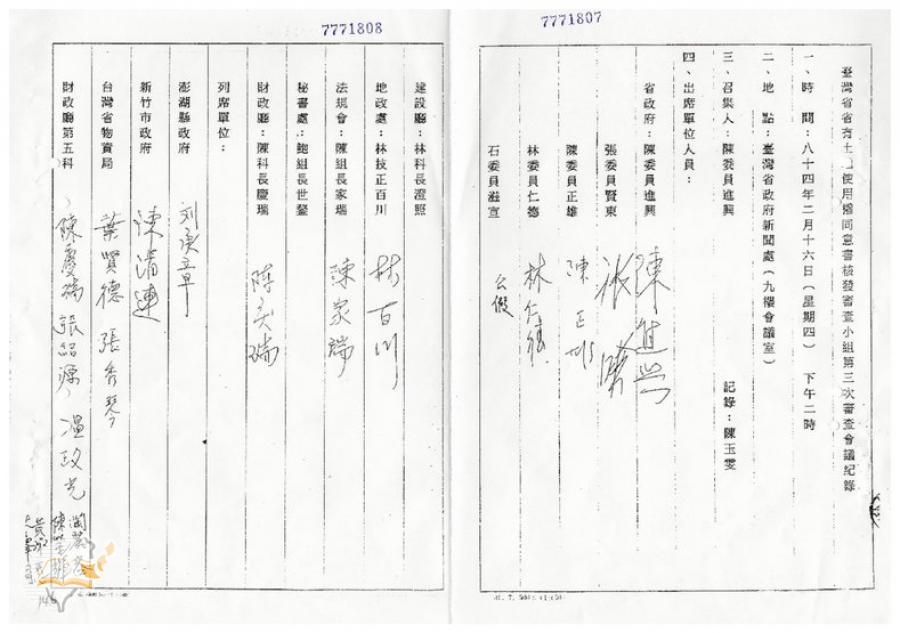 7771807
臺灣省省有土地使用權同意書核發審查小組第三次審查會議紀錄
一、時　間：八十四年二月十六日（星期四）　下午二時
二、地　點：臺灣省政府新聞處（九樓會議室）
三、召集人：陳委員進興　　　　　　　　記錄：陳玉雯
四、出席單位人員：
省政府：陳委員進興　陳進興
張委員賢東
陳委員正雄　陳正雄
林委員仁德　林仁德
石委員滋宜　公假
7771808
建設廳：林科長澄照
地政處：林技正百川　林百川
法規會：陳組長家瑞　陳家瑞
秘書處：鮑組長世鋆
財政廳：陳科長慶瑞　陳慶瑞
列席單位：
澎湖縣政府
新竹市政府　陳清連
台灣省物資局　葉賢德　張秀琴
財政廳第五科　陳慶瑞　張紹源　溫政光